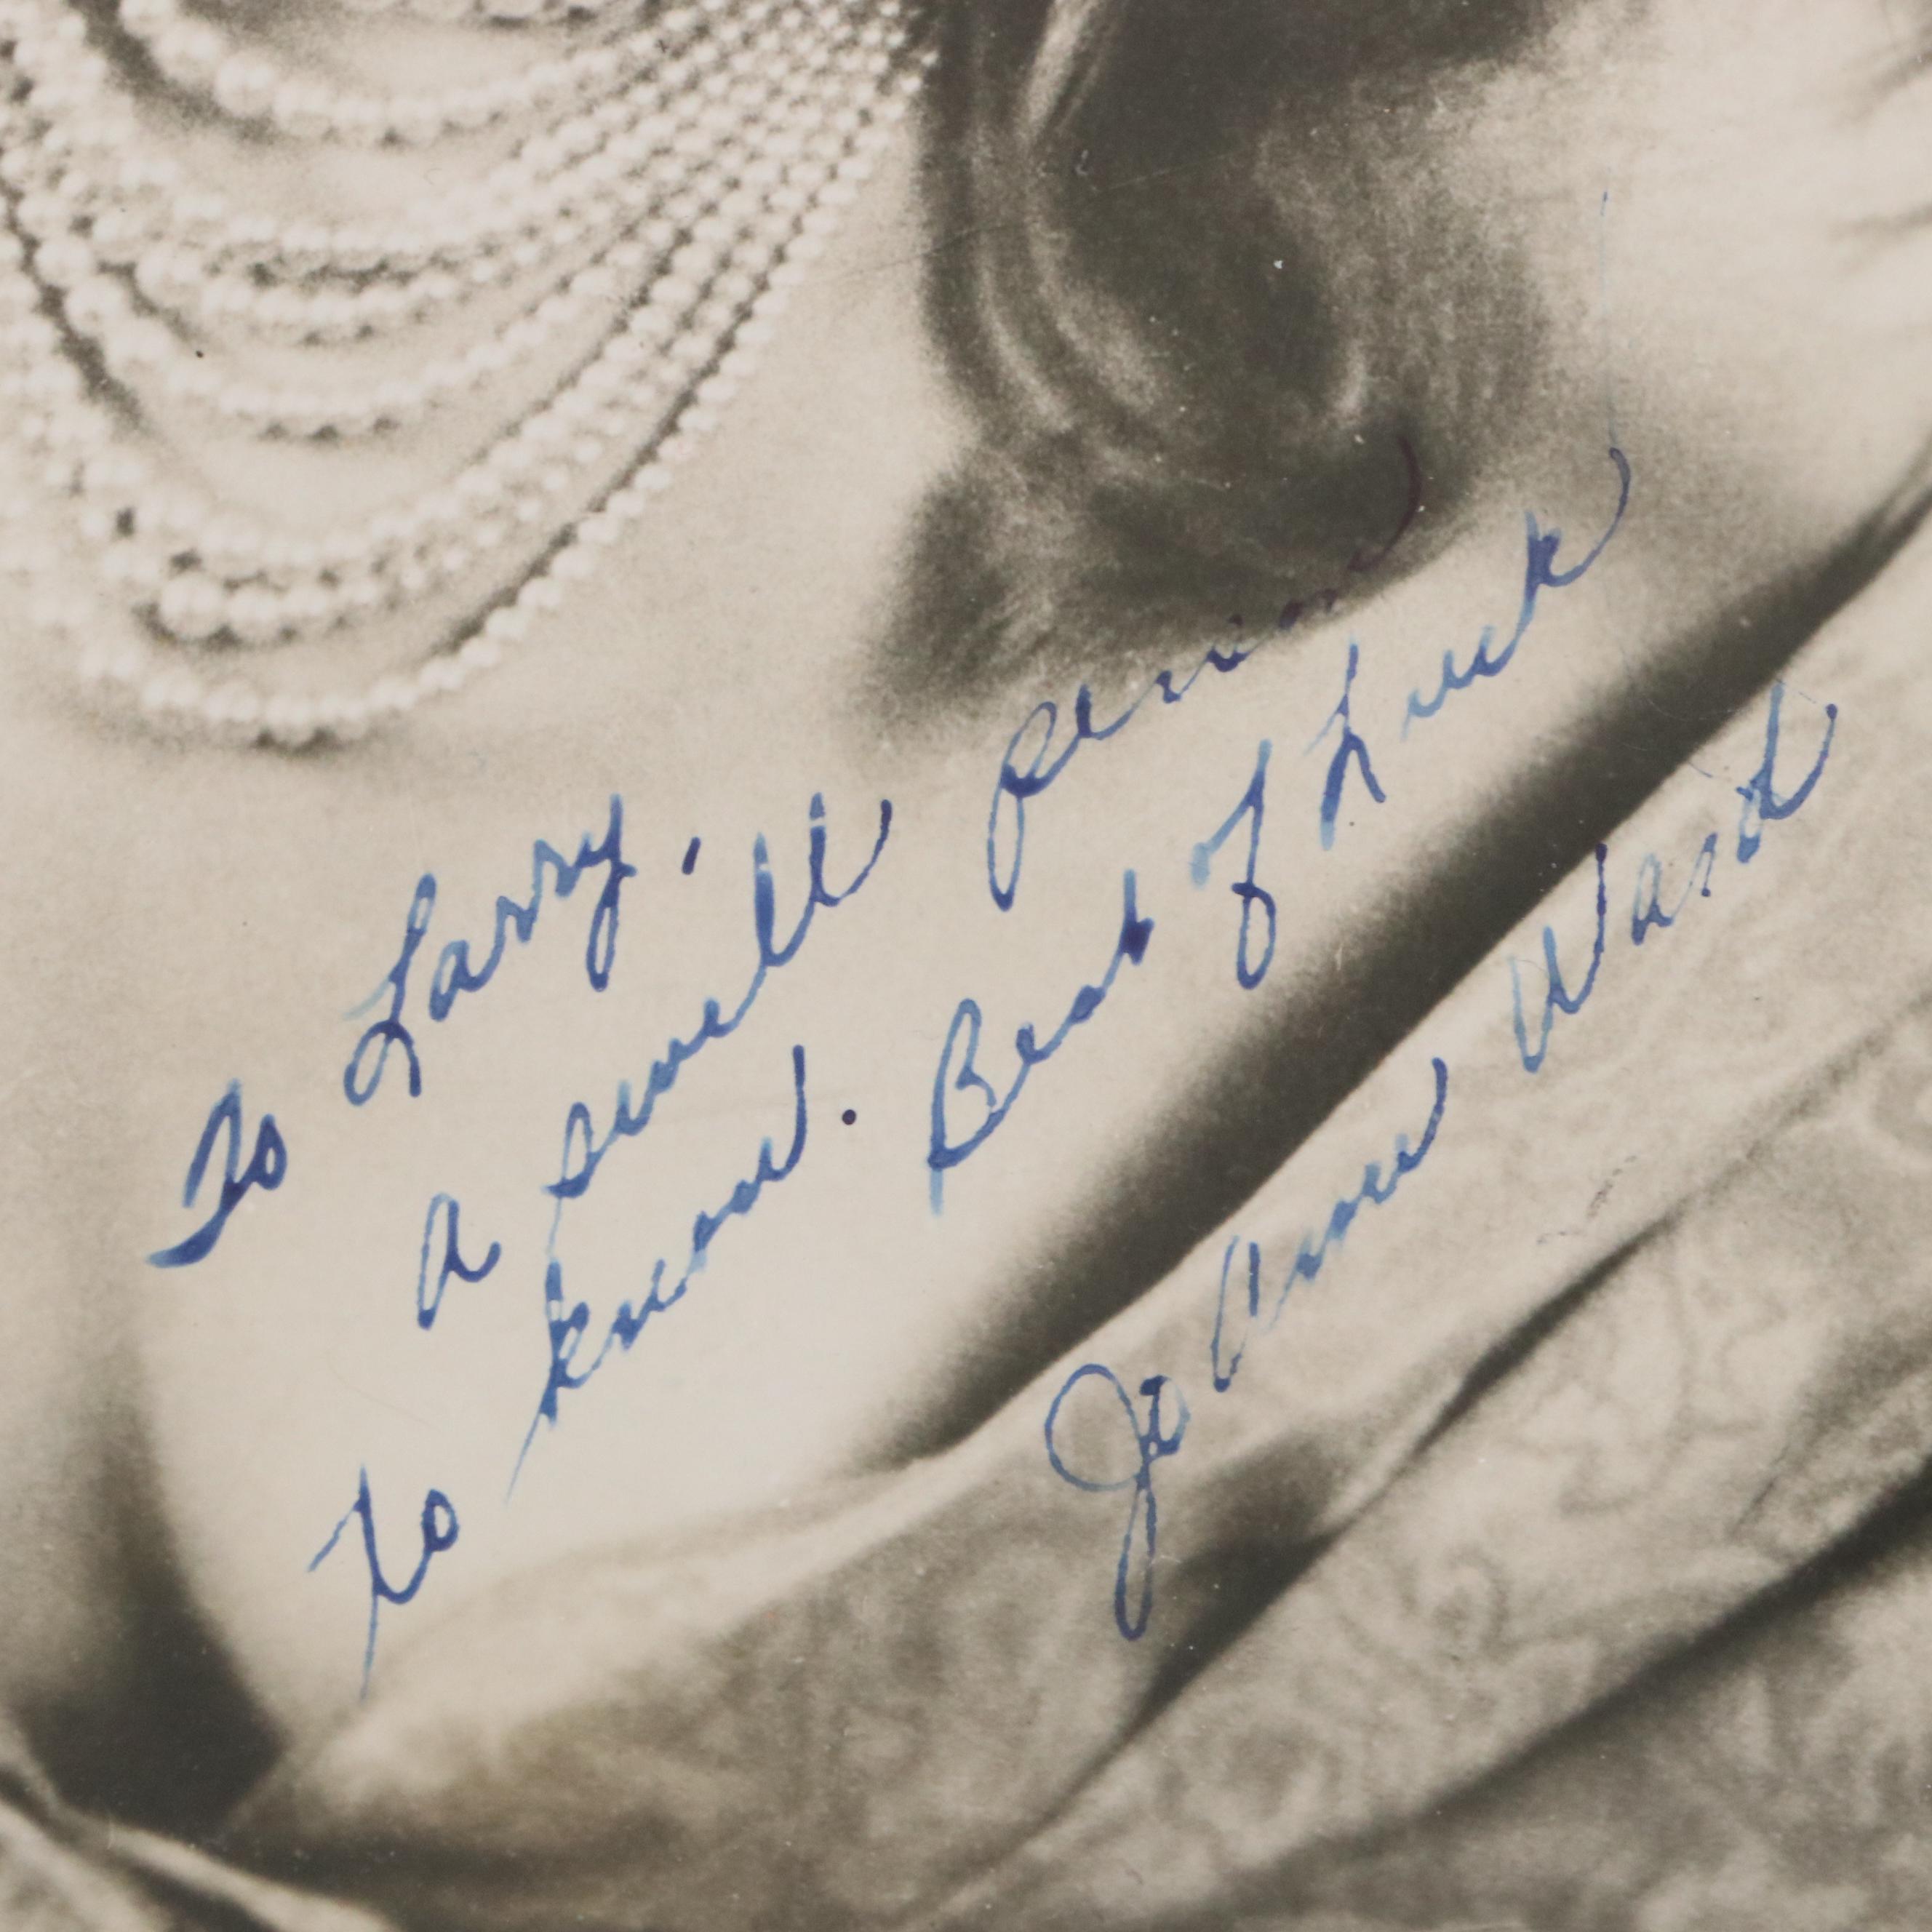 To Larry,
a swell person
to know. Best of Luck
Jo Ann Ward